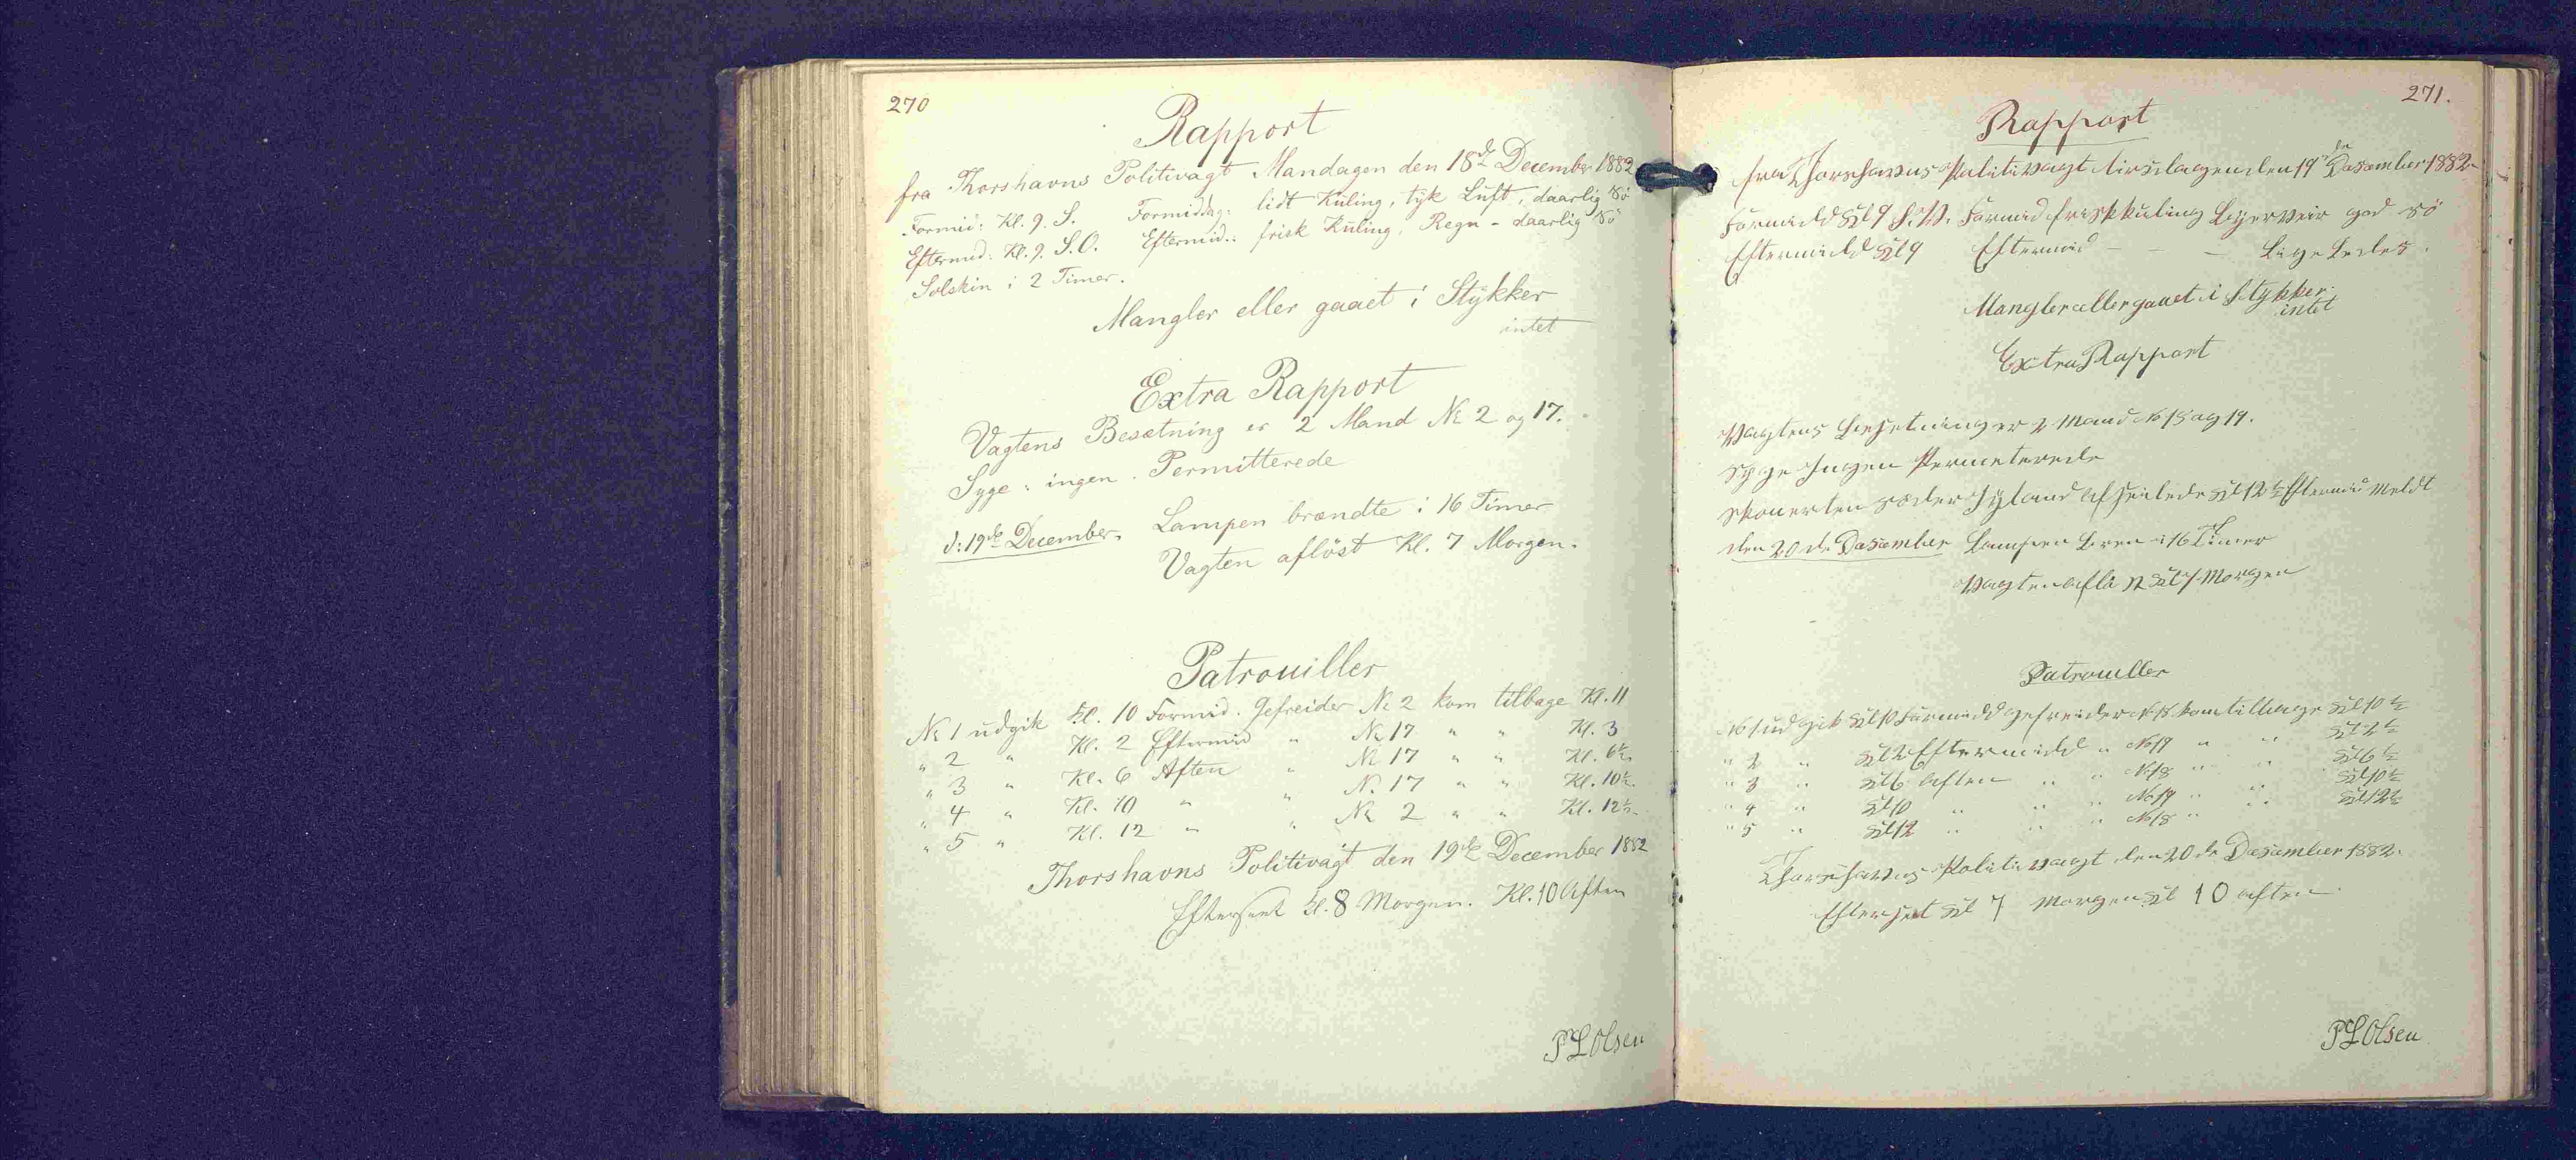 270
Rapport
fra Thorshavns Politivagt Mandagen den 18de December 1882
Formid: Kl. 9. S. Formiddag: lidt Kuling, tyk Luft, daarlig Sö
Eftermid: Kl. 9. S.O. Eftermid.: frisk Kuling, Regn - daarlig Sö
Solskin i 2 Timer.
Mangler eller gaaet i Stykker
intet
Extra Rapport
Vagtens Besætning er 2 Mand No 2 og 17.
Syge: ingen. Permitterede
d: 19de December. Lampen brændte i 16 Timer
Vagten aflöst Kl. 7 Morgen.
Patrouiller
No 1 udgik Kl. 10 Formid. Gefreider No 2 kom tilbage Kl. 11
" 2 " Kl. 2 Eftermid " No 17 " " Kl. 3
" 3 " Kl. 6 Aften " No 17 " " Kl. 6½
" 4 " Kl. 10 " " No 17 " " Kl. 10½
" 5 " Kl. 12 " " No 2 " " Kl. 12½
Thorshavns Politivagt den 19de December 1882
Efterseet Kl. 8 Morgen. Kl. 10 Aften
P L Olsen
271.
Rapport
fra Thorshavns Politivagt tirsdagen den 19de Desember 1882
Formidd Kl 9 S.V. Formid frisk kuling Byerveir god sö
Eftermidd Kl 9 Eftermid - - Lige Ledes.
Mangler eller gaaet i Stykker
intet
Extra Rapport
Vagtens besetning er 2 Mand No 18 og 19.
Syge Ingen Permeterede
skonerten afseilede Kl 12½ Eftermid Meldt
den 20de Desember Lampen bren i 16 Timer
Vagten Kl 7 Morgen
Patrouller
No 1 udgik Kl 10 Formidd gefreider No 18 kom tilbage Kl 10½
" 2 " Kl 2 Eftermidd " No 19 " " Kl 2½
" 3 " Kl 6 aften " " No 18 " " Kl 6½
" 4 " Kl 10 " " " No 19 " " Kl 10½
" 5 " Kl 12 " " " No 18 " " Kl 12½
Thorshavns Politivagt den 20de Desember 1882.
Efterset Kl 7 Morgen Kl 10 aften
P L Olsen